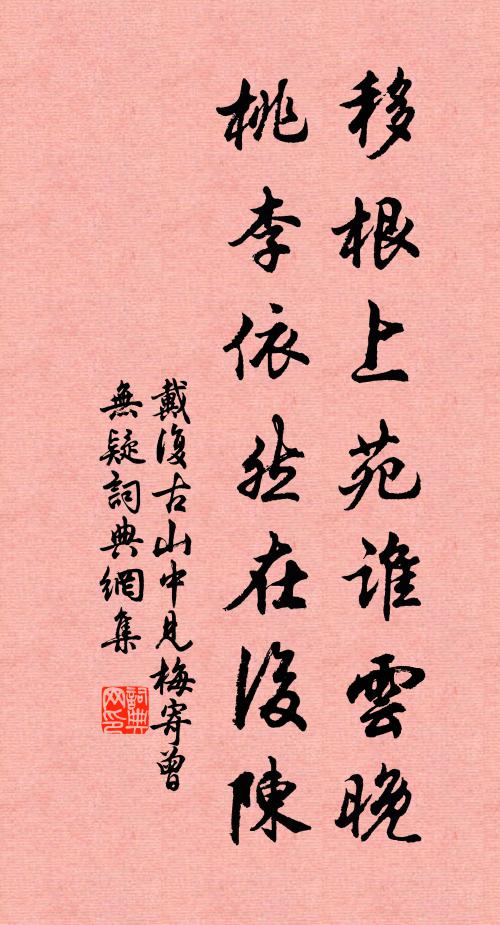 移根上苑誰雲晚
桃李依然在後陳
戴復古山中見梅寄曾
無疑詞典網集
詞典網印